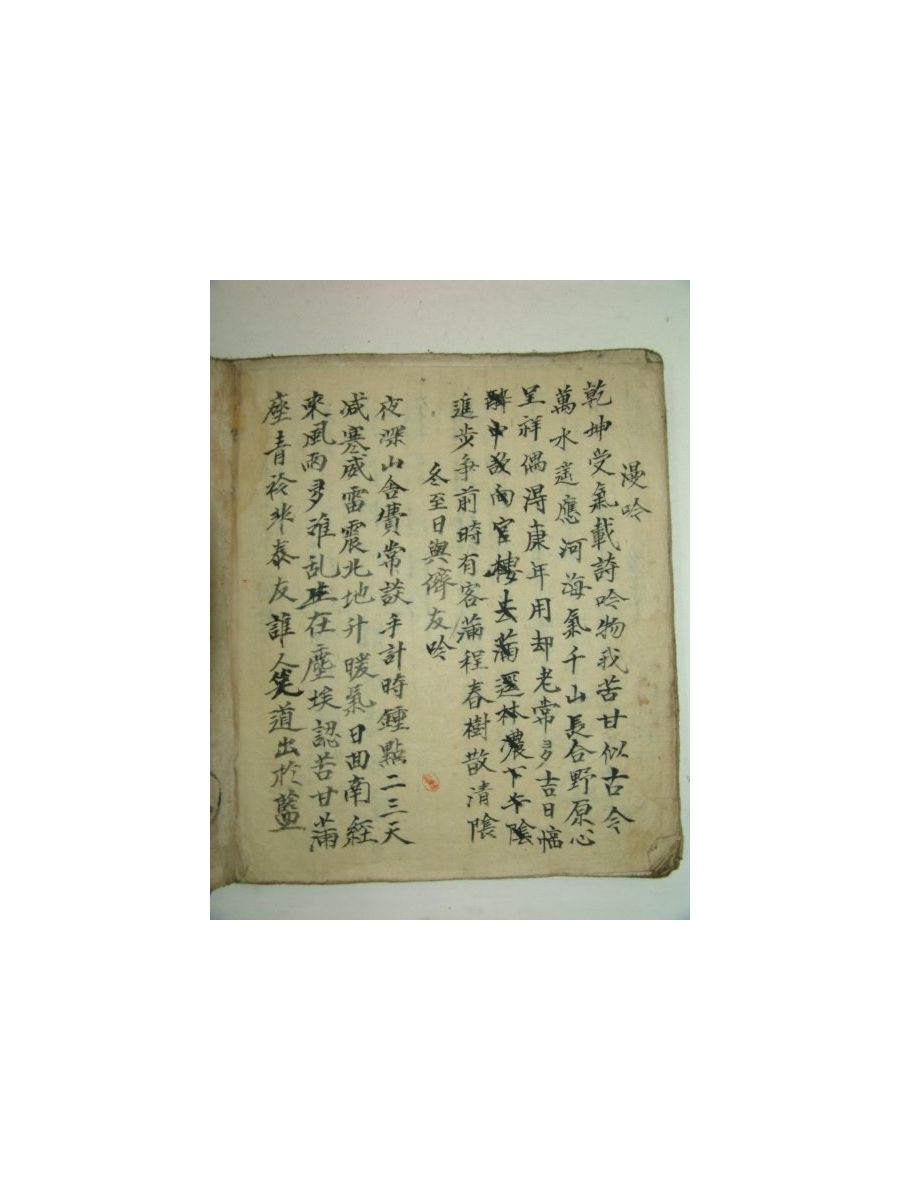 漫吟
乾坤受氣載詩吟物我苦甘似古今
萬水遙應河海氣千山長合野原心
呈祥偶得康年用却老常多吉日
醉中故向官樓去滿還林濃下午陰
進步爭前時有客滿程春樹散清陰
冬至日與儕友吟
夜深山舍費常談手計時鍾點二三天
減寒威雷震北地升暖氣日回南經
來風雨多雖乱生在塵埃認苦甘蒲
座青衿非泰友誰人道出於藍